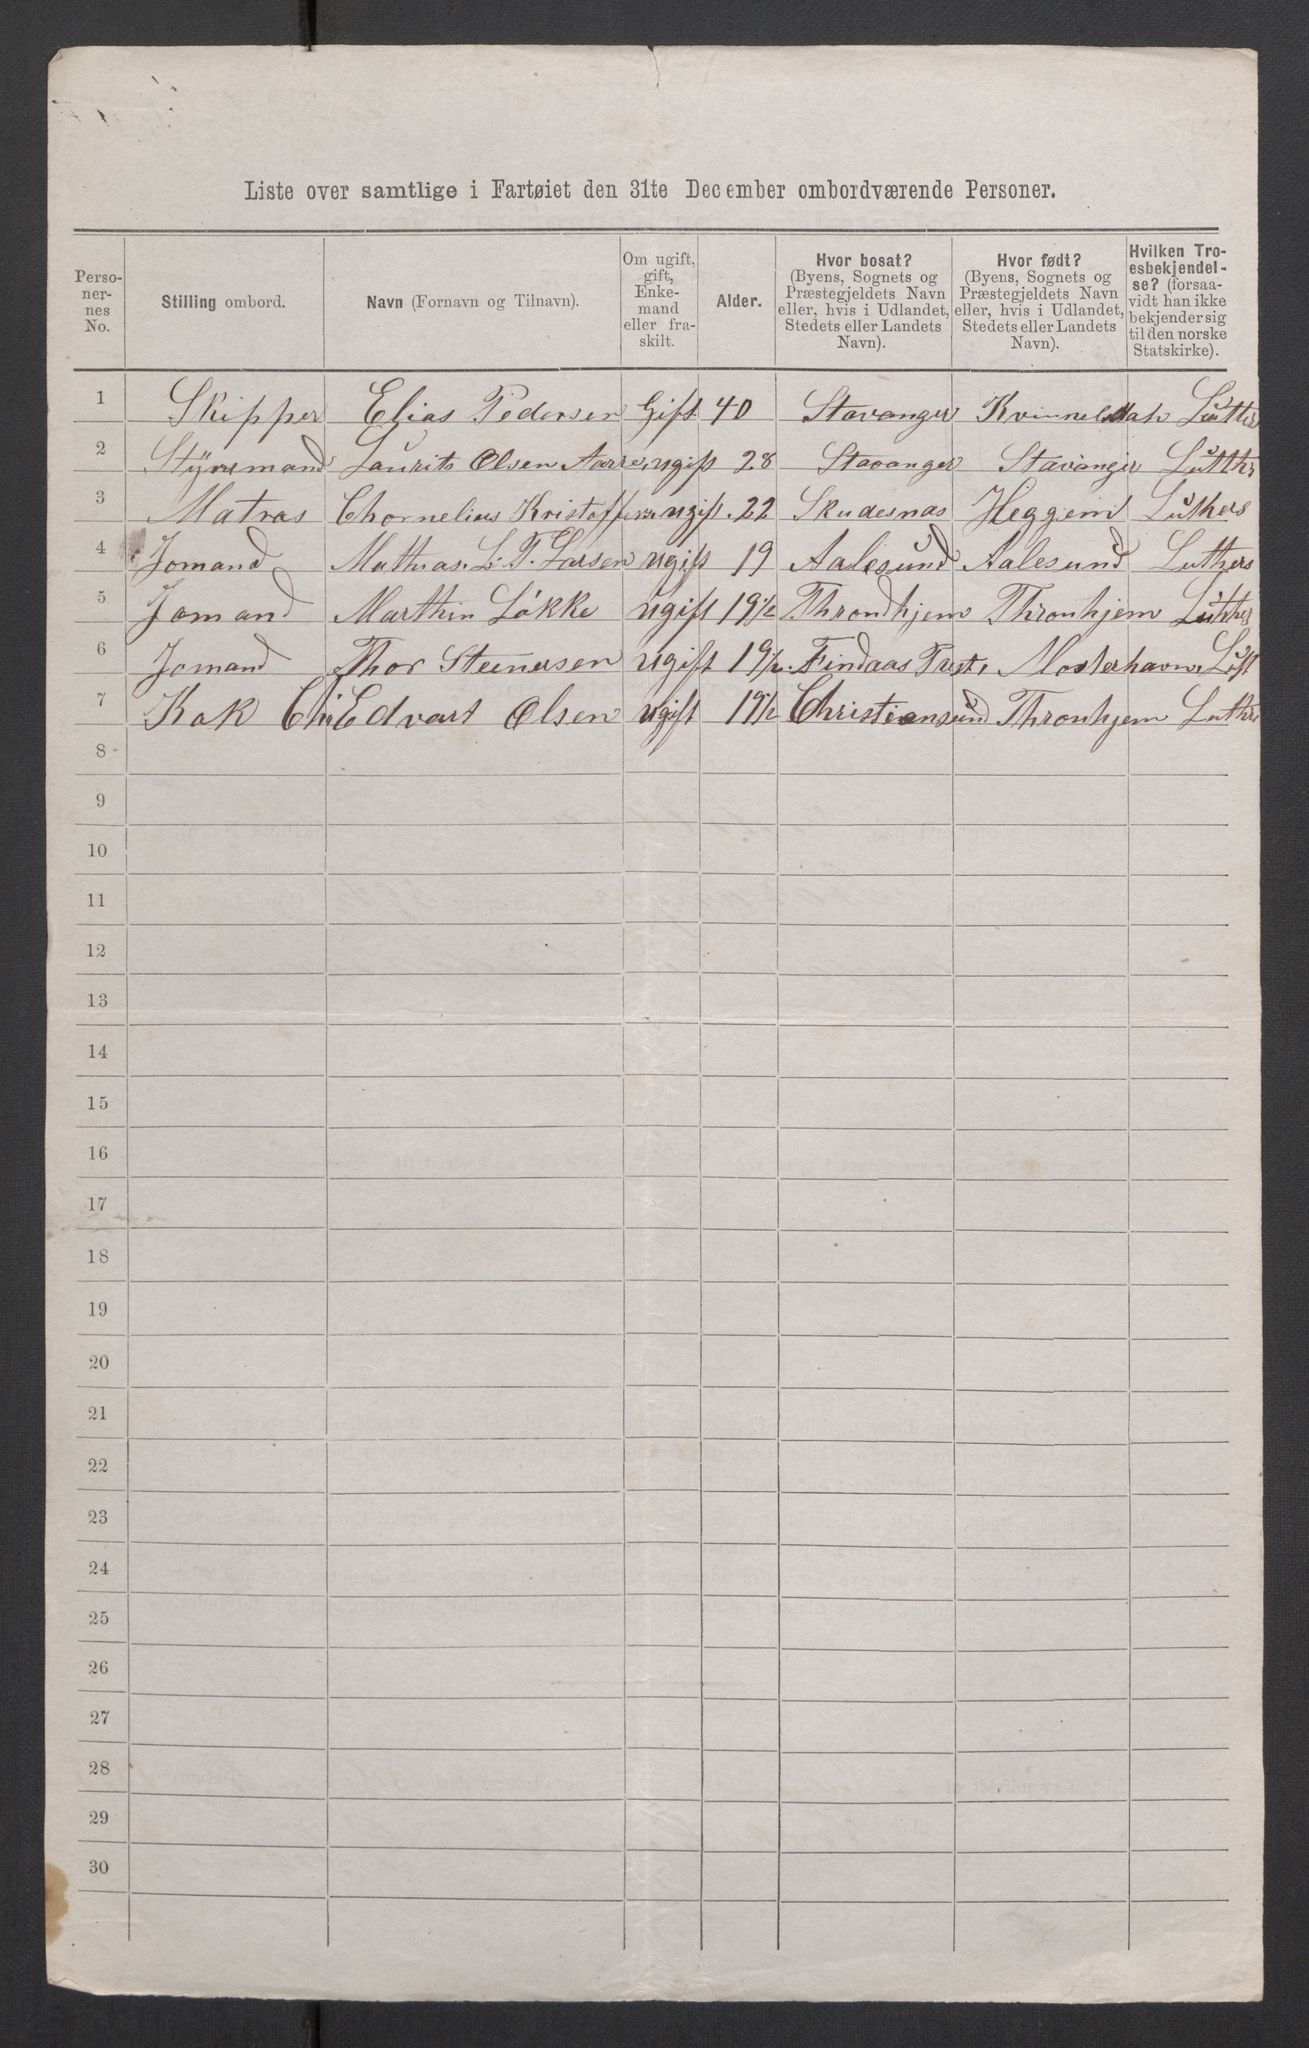 Liste over samtlige i Fartøiet den 31te December ombordværende Personer.
Perso-
ner-
nes
No.
Stilling ombord.
Navn (Fornavn og Tilnavn).
Om ugift,
gift,
Enke-
mand
eller fra-
skilt.
Alder.
Hvor bosat?
(Byens, Sognets og
Præstegjeldets Navn
eller, hvis i Udlandet,
Stedets eller Landets
Navn).
Hvor født?
(Byens, Sognets og
Præstegjeldets Navn
eller, hvis i Udlandet,
Stedets eller Landets
Navn).
Hvilken Tro-
esbekjendel-
se? (forsaa-
vidt han ikke
bekjender sig
til den norske
Statskirke).
1 Skipper Elias Pedersen Gift 40 Stavanger
2 Styrmand Laurits Olsen Aarre ugift 28 Stavanger Stavanger
3 Matros Chornelius ugift 22 Skudesnas Heggem Luthers
4 Jomand Mathias L. P. Larsen ugift 19 Aalesund Aalesund Luthers
5 Jomand Marthin Løkke ugift 19 1/2 Throndhjem Thronhjem
6 Jomand Thor Steenersen ugift 19 1/2 Findaas Mosterhavn
7 Kok Edvart Olsen ugift 19 1/2 Christiansund Thronhjem
8
9
10
11
12
13
14
15
16
17
18
19
20
21
22
23
24
25
26
27
28
29
30